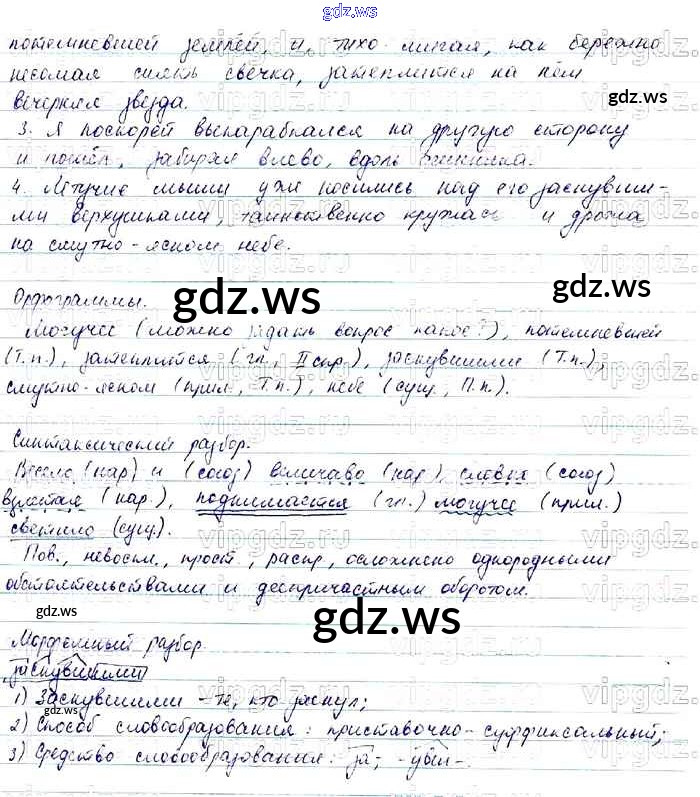 gdz.ws
потемневшей землей, и, тихо мигая, как бережно
несомая опять свечка, затеплится на нём
gdz.ws
вечерняя звезда.
3. Я поскорей выкарабкался на другую сторону
и пошёл, забирая влево, вдоль осинника.
4. Летучие мыши уже носились над его заснувши-
ми верхушками, таинственно кружась и дрожа
на смутно-ясном небе.
gdz.ws
gdz.ws
Орфограммы.
Могучее (можно задать вопрос какое?), потемневшей
(Т.п.), затеплится (гл., II спр.), заснувшими (Т.п.),
смутно-ясном (прил., Т.п.), небе (сущ., П.п.).
gdz.ws
Синтаксический разбор.
Весело (нар) и (союз) величаво (нар), словно (союз)
взлетая (нар.), поднимается (гл.) могучее (прил.)
светило (сущ.).
Пов., невоскл., прост., распр., осложнено однородными
обстоятельствами и деепричастным оборотом.
gdz.ws
gdz.ws
Морфемный разбор.
заснувшими
1) Заснувшими – те, кто заснул;
2) Способ словообразования: приставочно-суффиксальный;
3) Средство словообразования: за-, -увш-.
gdz.ws